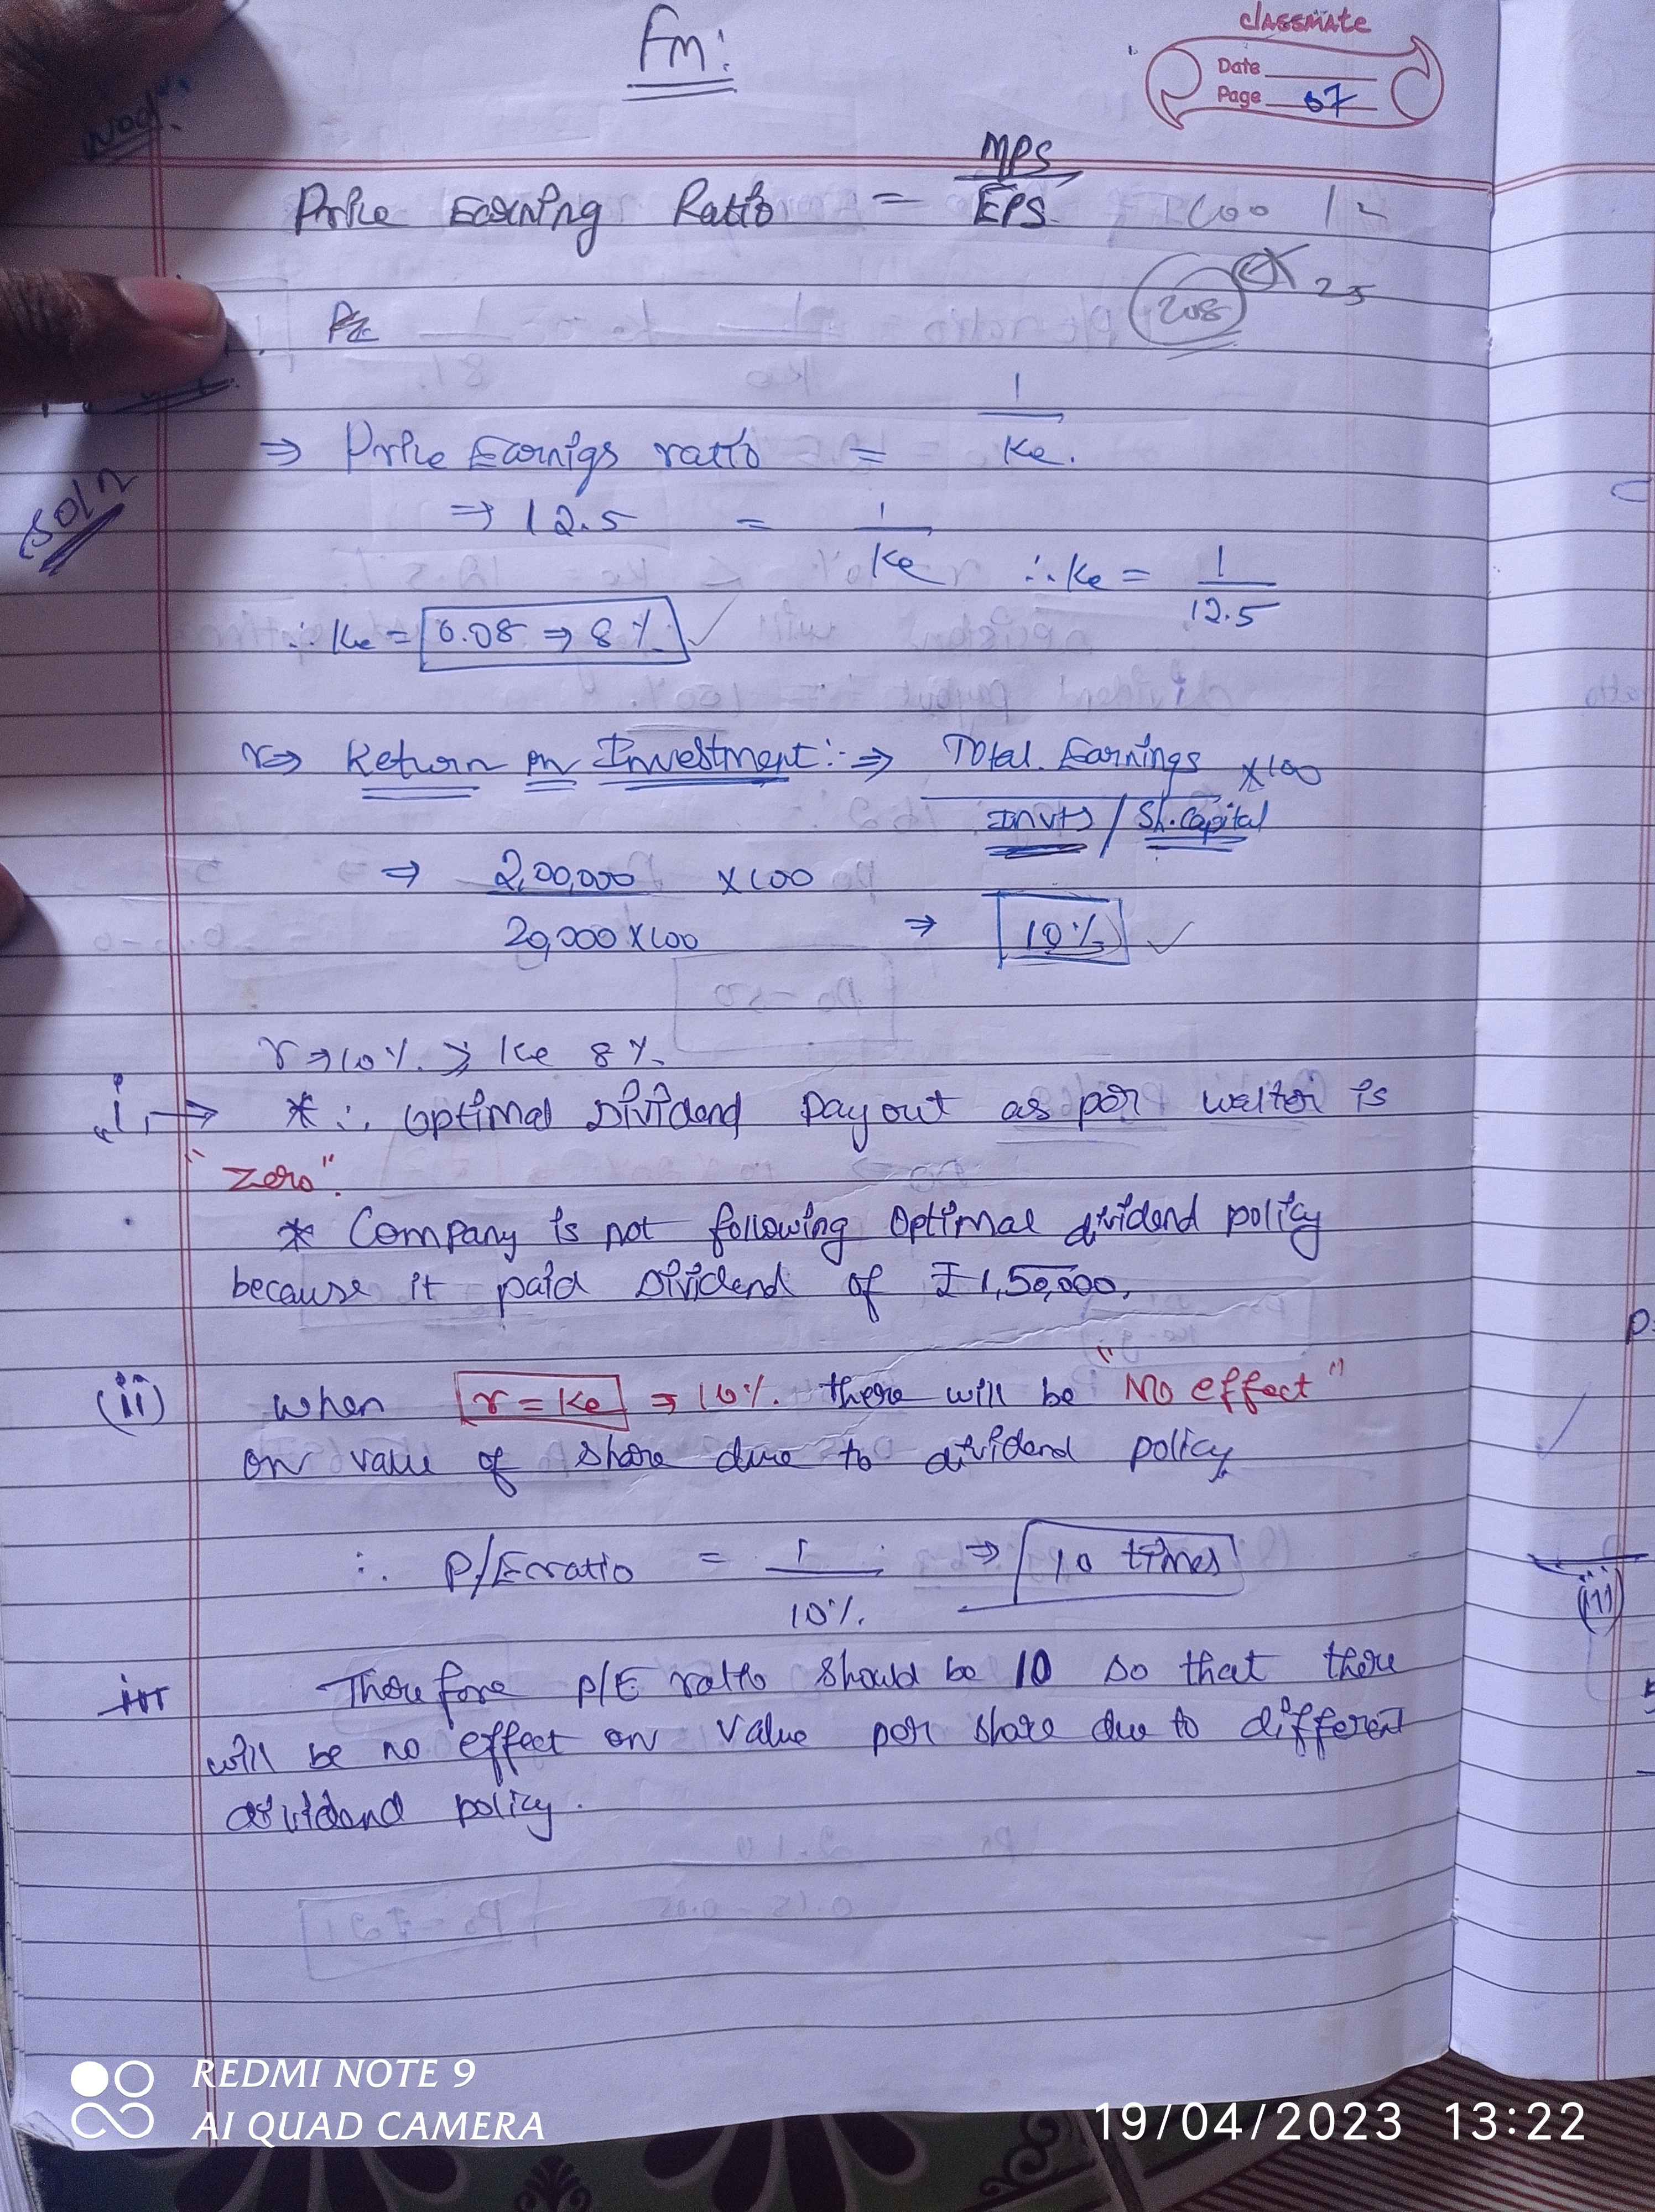 Fm:
classmate
Date
Page 07
Price Earning Ratio = MPS / EPS
208
25
⇒ Price Earnigs ratio = 1 / Ke.
Soln
⇒ 12.5 = 1 / Ke ∴ Ke = 1 / 12.5
∴ Ke = 0.08 ⇒ 8% ✓
r ⇒ Return on Investment :- ⇒ Total. Earnings / Invts / Sh. Capital × 100
⇒ 2,00,000 / 20,000 × 100 × 100 ⇒ 10% ✓
r ⇒ 10% > Ke 8%
i, → * ∴ Optimal Dividend Payout as per walter is
"Zero".
* Company is not following Optimal dividend policy
because it paid Dividend of ₹ 1,50,000.
(ii) when r = Ke ⇒ 10%. there will be "No effect"
on value of share due to dividend policy
∴ P/E ratio = 1 / 10% ⇒ 10 times
Therefore P/E ratio should be 10 so that there
will be no effect on value per share due to different
dividend policy.
(iii)
REDMI NOTE 9
AI QUAD CAMERA
19/04/2023 13:22